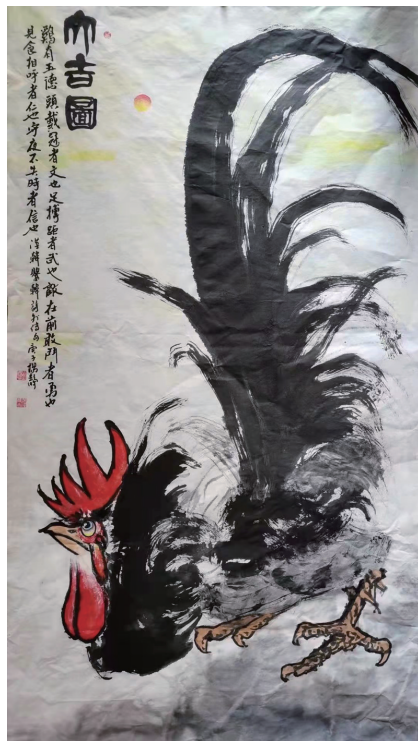 大吉圖
鷄有五德頭戴冠者文也足搏距者武也敵在前敢鬥者勇也
見食相呼者仁也守夜不失時者信也 漢韓嬰韓詩外傳句 庚子